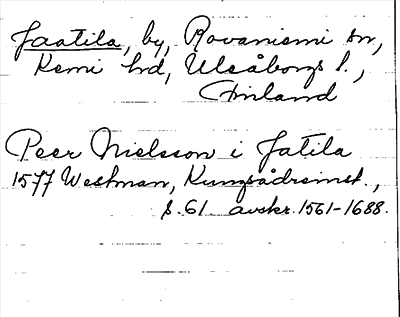 Jaatila, by, Rovaniemi sn,
Kemi hd, Uleåborgs l.,
Finland
Peer Nielsson i Jatila
1577 Westman, Kungsådreinst.,
s. 61. avskr. 1561-1688.